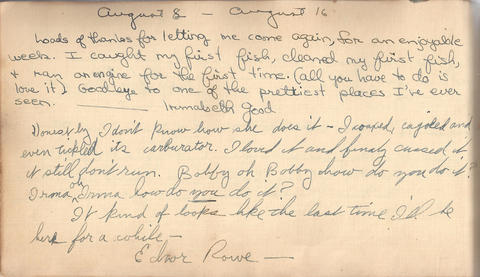 August 8 – August 16
Loads of thanks for letting me come again, for an enjoyable
week. I caught my first fish, cleaned my first fish,
+ ran an engine for the first time. (all you have to do is
love it.) Goodbye to one of the prettiest places I've ever
seen. ——— Irmabeth Good
Honestly I don't know how she does it – I coaxed, cajoled and
even tickled its carburator. I loved it and finaly cussed it
it still don't run. Bobby oh Bobby how do you do it?
Irma oh Irma how do you do it?
It kind of looks like the last time I'll be
here for a while –
Rowe —